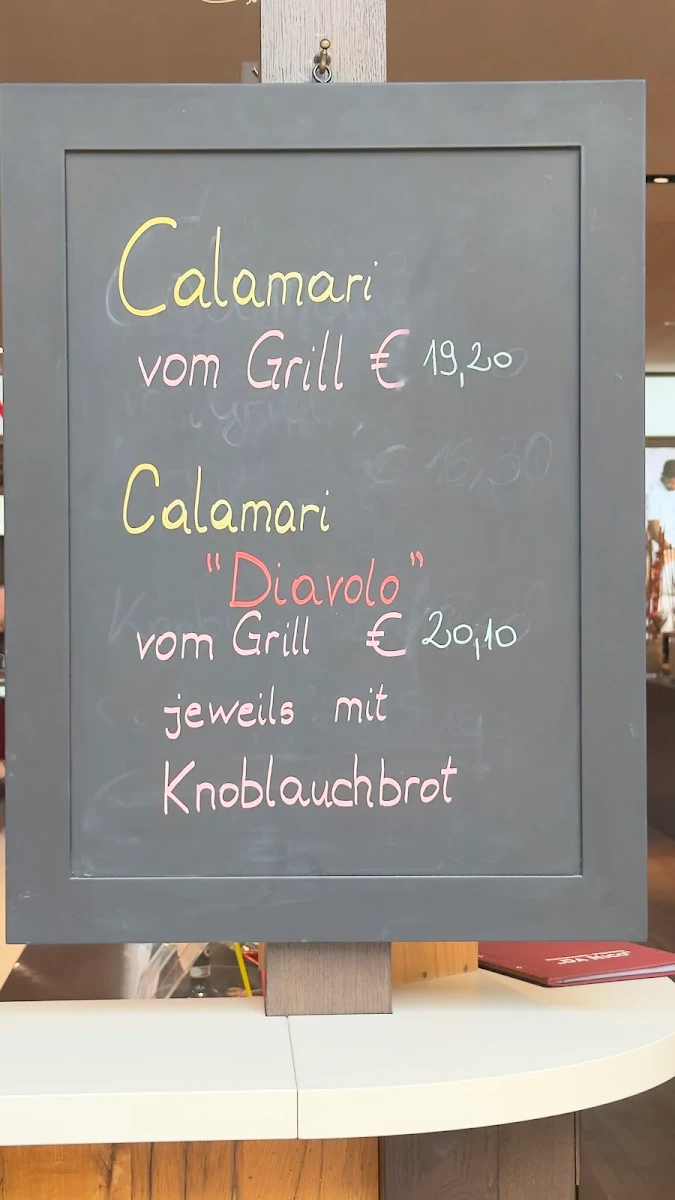 Calamari
vom Grill € 19,20
€ 16,30
Calamari
"Diavolo"
vom Grill € 20,10
jeweils mit
Knoblauchbrot